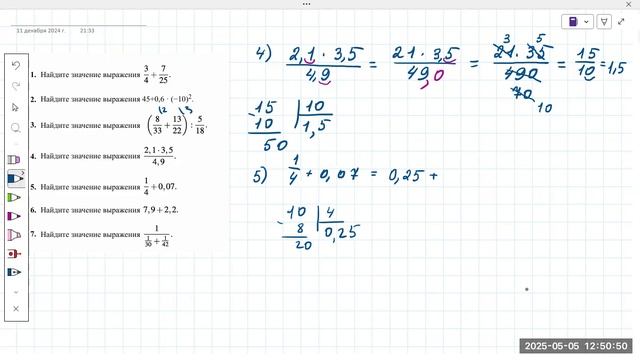 11 декабря 2024 г. 21:33
1. Найдите значение выражения 3/4 + 7/25.
2. Найдите значение выражения 45+0,6 · (−10)².
12 13
3. Найдите значение выражения (8/33 + 13/22) : 5/18.
4. Найдите значение выражения 2,1 · 3,5 / 4,9.
5. Найдите значение выражения 1/4 + 0,07.
6. Найдите значение выражения 7,9 + 2,2.
7. Найдите значение выражения 1 / (1/30 + 1/42).
3 5
4) 2,1 · 3,5 / 4,9 = 21 · 3,5 / 49 0 = 21 · 35 / 490 = 15 / 10 = 1,5
70
10
15 | 10
- 10 | 1,5
50
5) 1/4 + 0,07 = 0,25 +
10 | 4
- 8 | 0,25
20
2025-05-05 12:50:50